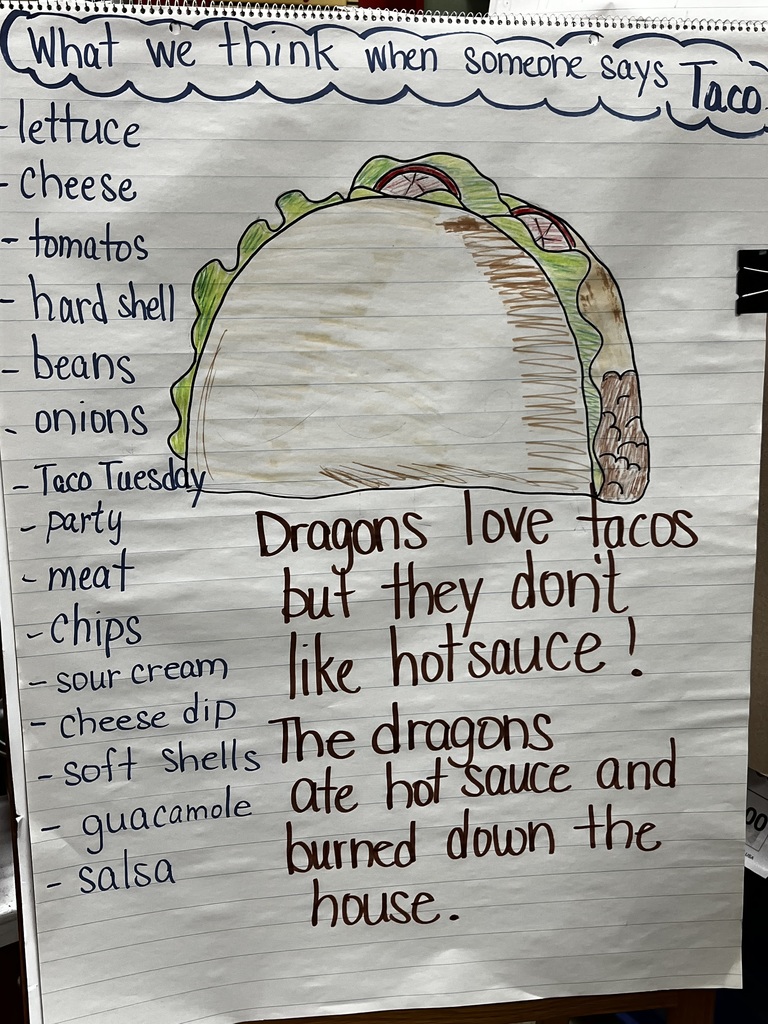 What we think when someone says Taco
- lettuce
- cheese
- tomatos
- hard shell
- beans
- onions
- Taco Tuesday
- party
- meat
- chips
- sour cream
- cheese dip
- soft shells
- guacamole
- salsa
Dragons love tacos
but they don't
like hot sauce!
The dragons
ate hot sauce and
burned down the
house.
00